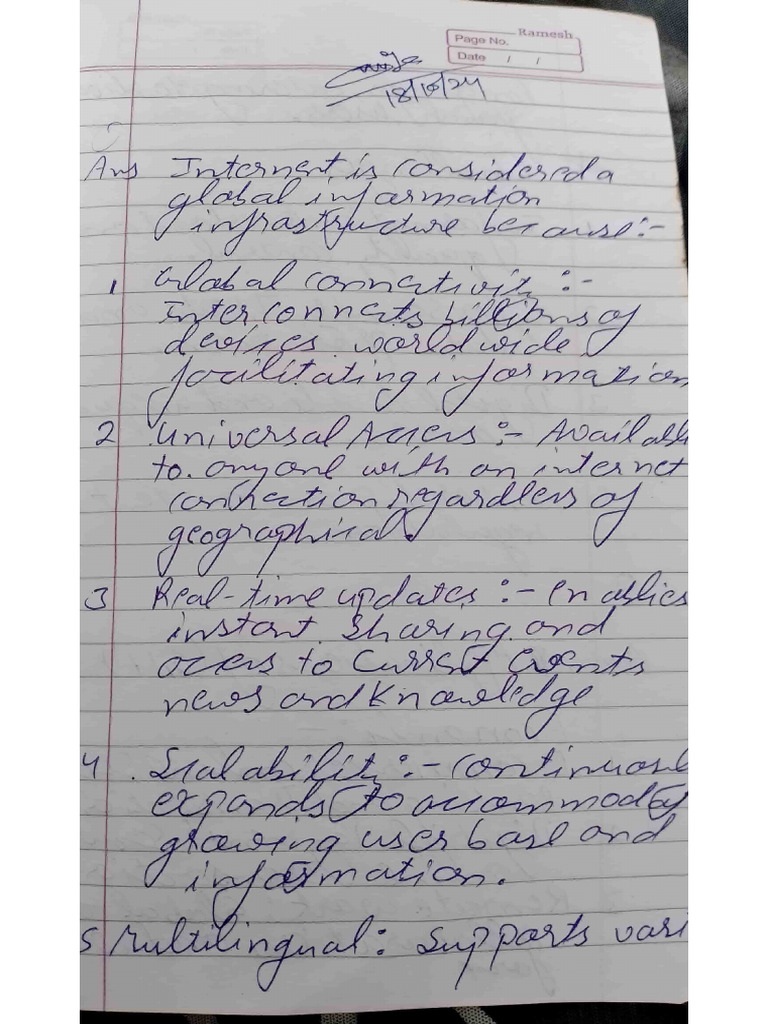 Ramesh
Page No.
Date / /
18/10/24
Ans Internent is considered a
global information
infrastructure because:-
1 Global connectivity :-
Inter connects billions of
devices worldwide
facilitating information
2 Universal Access :- Availabl
to anyone with an internet
connection regardless of
geographical.
3 Real-time updates :- enables
instant sharing and
access to current events
news and knowledge
4 Scalability :- continuousl
expands to accommodat
growing user base and
information.
5 Multilingual: Supports vari